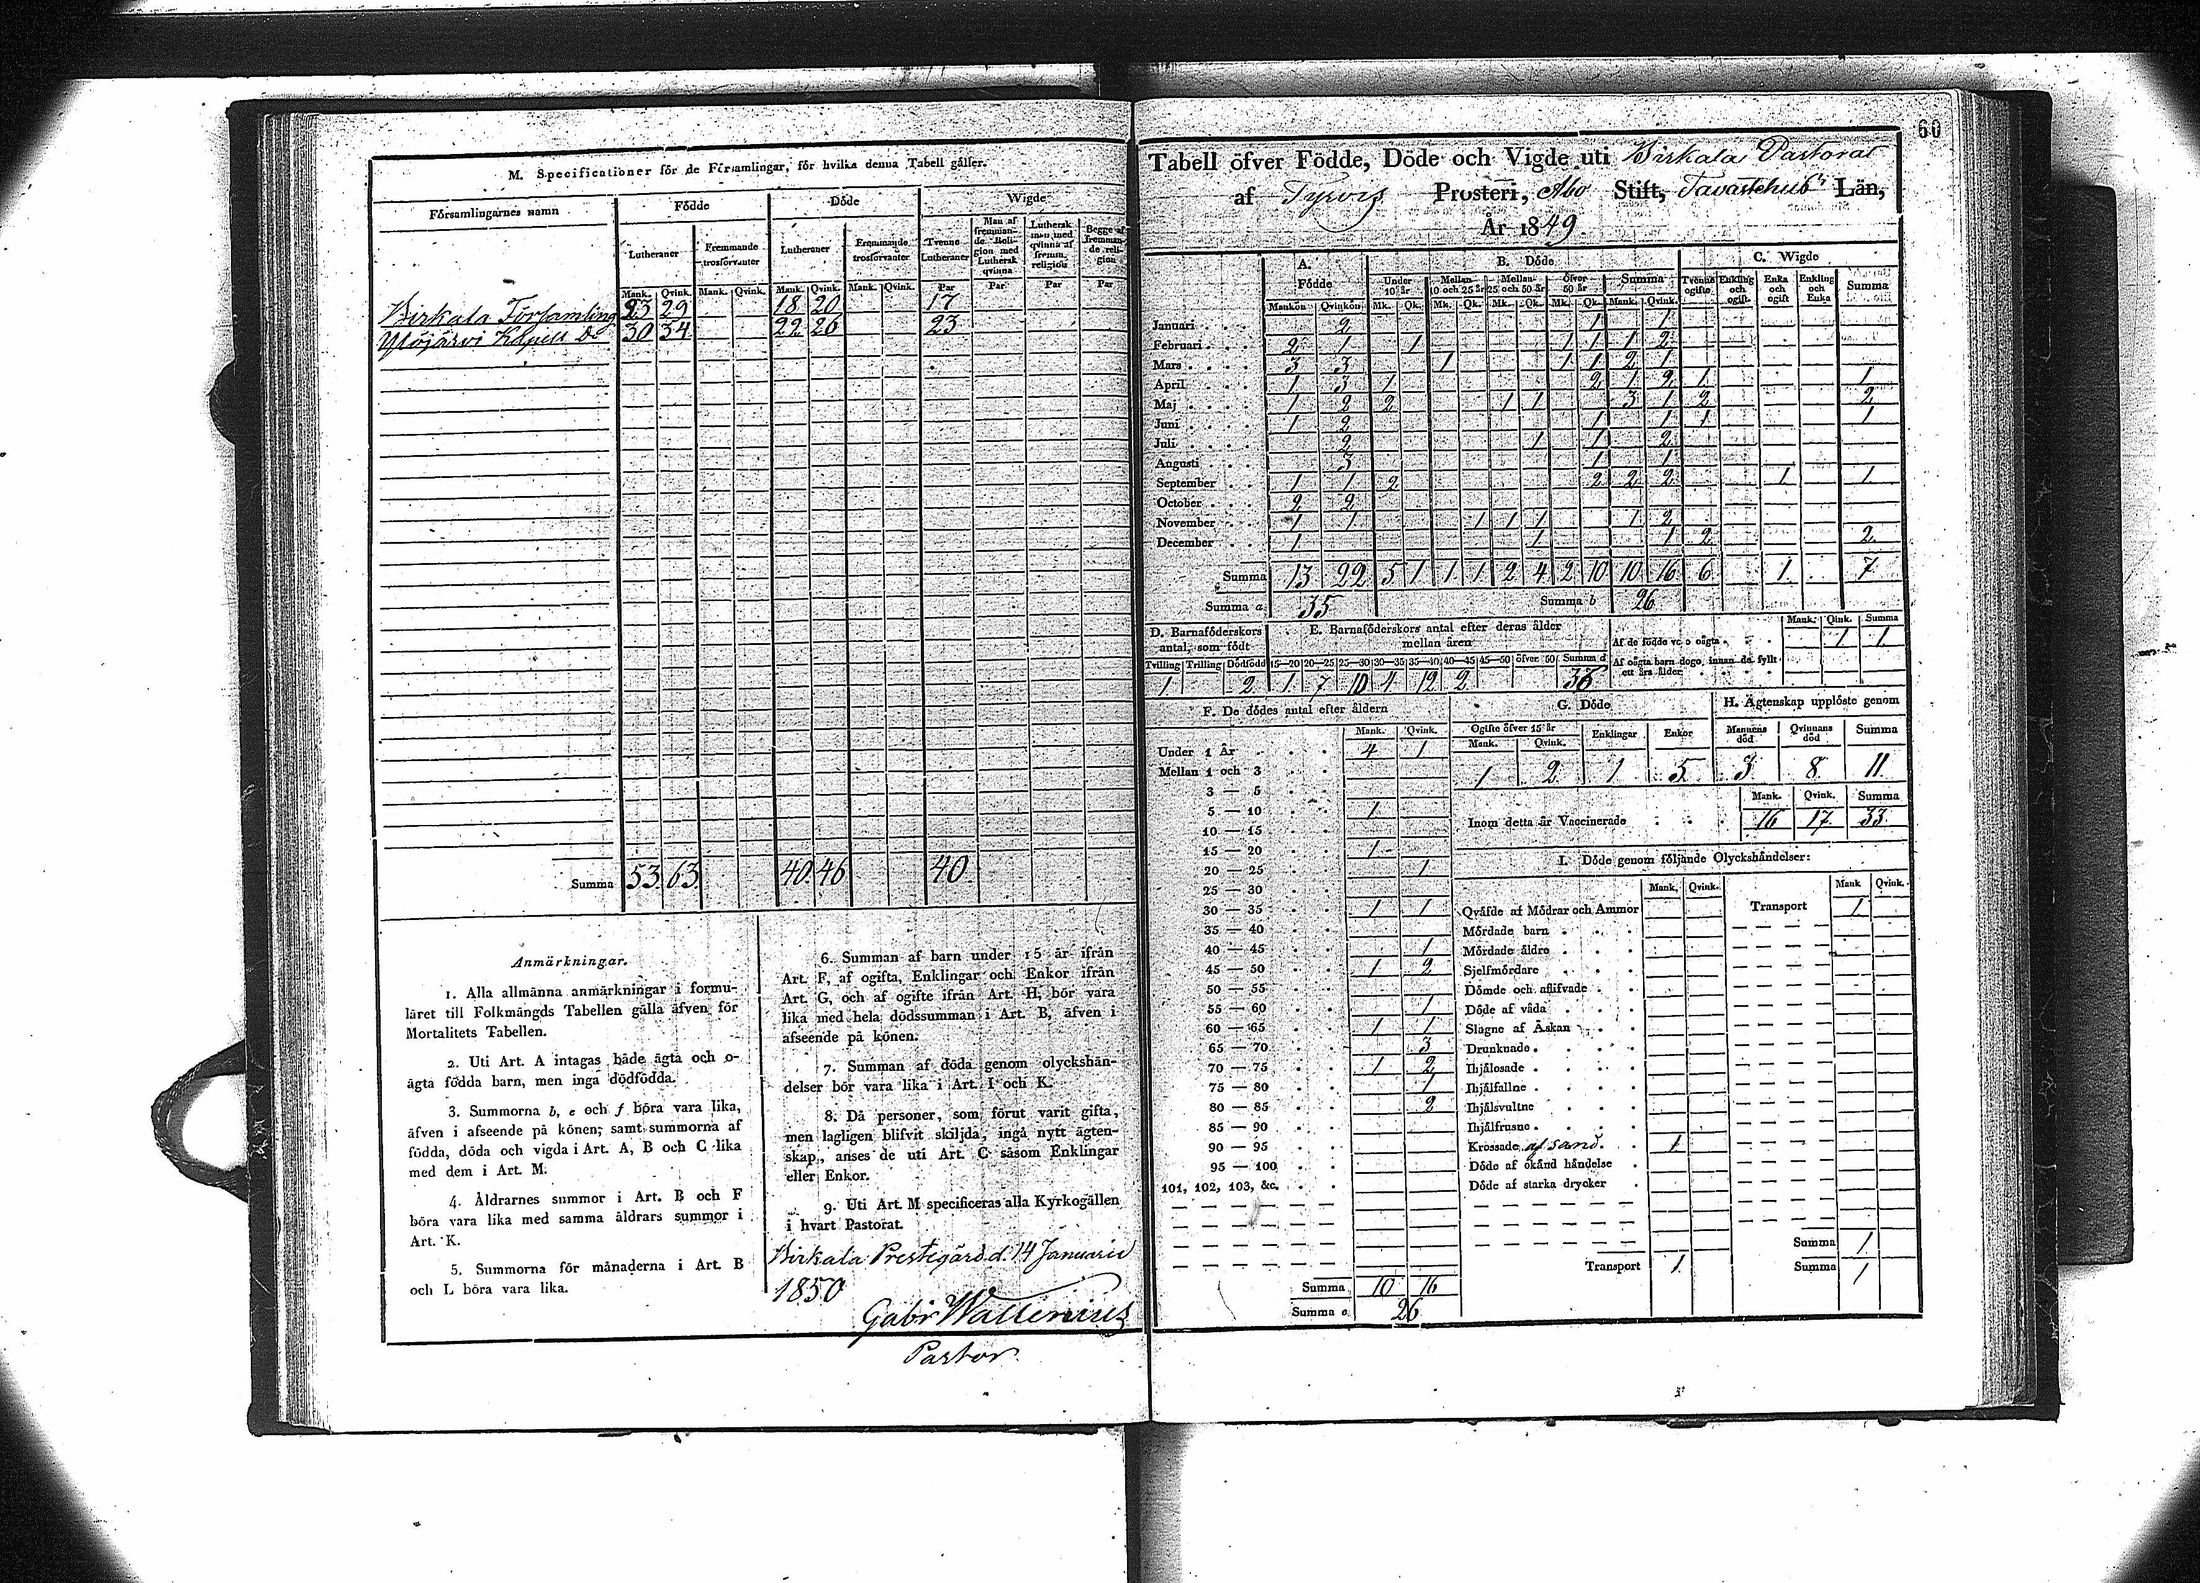 M. Specificationer för de Församlingar, för hvilka denna Tabell gäller.
Församlingarnes namn Födde Döde Wigde
Lutheraner Fremmande trosförvanter Lutheraner Fremmande trosförvanter Tvenne Lutheraner Man af fremmande Religion med Luthersk qvinna Luthersk man med qvinna af fremm. religion Begge af fremmande religion
Mank. Qvink. Mank. Qvink. Mank. Qvink. Mank. Qvink. Par Par Par Par
Birkala Församling 23 29 18 20 17
Ylöjärvi Kapell Do 30 34 22 26 23
Summa 53 63 40 46 40
Anmärkningar.
1. Alla allmänna anmärkningar i formu-
läret till Folkmängds Tabellen gälla äfven för
Mortalitets Tabellen.
2. Uti Art. A intagas både ägta och o-
ägta födda barn, men inga dödfödda.
3. Summorna b, e och f böra vara lika,
äfven i afseende på könen; samt summorna af
födda, döda och vigda i Art. A, B och C lika
med dem i Art. M.
4. Åldrarnes summor i Art. B och F
böra vara lika med samma åldrars summor i
Art. K.
5. Summorna för månaderna i Art. B
och L böra vara lika.
6. Summan af barn under 15 år ifrån
Art. F, af ogifta, Enklingar och Enkor ifrån
Art. G, och af ogifte ifrån Art. H, bör vara
lika med hela dödssumman i Art. B, äfven i
afseende på könen.
7. Summan af döda genom olyckshän-
delser bör vara lika i Art. I och K.
8. Då personer, som förut varit gifta,
men lagligen blifvit skiljda, ingå nytt ägten-
skap, anses de uti Art. C såsom Enklingar
eller Enkor.
9. Uti Art. M specificeras alla Kyrkogällen
i hvart Pastorat.
Birkala Prestegård d. 14 Januarii
1850
Gabr Wallenius
Pastor
60
Tabell öfver Födde, Döde och Vigde uti Birkala Pastorat
af Tyrvis Prosteri, Abo Stift, Tavastehus Län,
År 1849
A. Födde B. Döde C. Wigde
Under 10 år Mellan 10 och 25 år Mellan 25 och 50 år Öfver 50 år Summa Tvenne ogifte Enkling och ogift Enka och ogift Enkling och Enka Summa
Mankön Qvinkön Mk. Qk. Mk. Qk. Mk. Qk. Mk. Qk. Mank. Qvink.
Januari 2 1 1
Februari 2 1 1 1 1 1 2
Mars 3 3 1 1 1 2 1
April 1 3 1 2 1 2 1 1
Maj 1 2 2 1 1 3 1 2 2
Juni 1 2 1 1 1 1
Juli 2 1 1 2
Augusti 3 1 1
September 1 1 2 2 2 2 1 1
October 2 2
November 1 1 1 1 1 1 2
December 1 1 1 2 2
Summa 13 22 5 1 1 1 2 4 2 10 10 16 6 1 7
Summa a 35 Summa b 26
D. Barnaföderskors antal, som födt E. Barnaföderskors antal efter deras ålder mellan åren
Tvilling Trilling Dödfödd 15—20 20—25 25—30 30—35 35—40 40—45 45—50 öfver 50 Summa d
1 2 1 7 10 4 12 2 36
Mank. Qink. Summa
Af de födde voro oägta 1 1
Af oägta barn dogo, innan de fyllt
ett års ålder
F. De dödes antal efter åldern
Mank. Qvink.
Under 1 År 4 1
Mellan 1 och 3
3 — 5
5 — 10 1
10 — 15
15 — 20 1
20 — 25 1
25 — 30
30 — 35 1 1
35 — 40
40 — 45 1
45 — 50 1 2
50 — 55
55 — 60 1
60 — 65 1 1
65 — 70 3
70 — 75 1 2
75 — 80 1
80 — 85 2
85 — 90
90 — 95
95 — 100
101, 102, 103, &c.
Summa 10 16
Summa e 26
G. Döde
Ogifte öfver 15 år Enklingar Enkor
Mank. Qvink.
1 2 1 5
H. Ägtenskap upplöste genom
Mannens död Qvinnans död Summa
3 8 11
Mank. Qvink. Summa
Inom detta år Vaccinerade 16 17 33
I. Döde genom följande Olyckshändelser:
Mank. Qvink. Mank Qvink.
Qväfde af Mödrar och Ammor Transport 1
Mördade barn
Mördade äldre
Sjelfmördare
Dömde och aflifvade
Döde af våda
Slagne af Åskan
Drunknade
Ihjälosade
Ihjälfallne
Ihjälsvultne
Ihjälfrusne
Krossade af sand. 1
Döde af okänd händelse
Döde af starka drycker
Summa 1
Transport 1 Summa 1